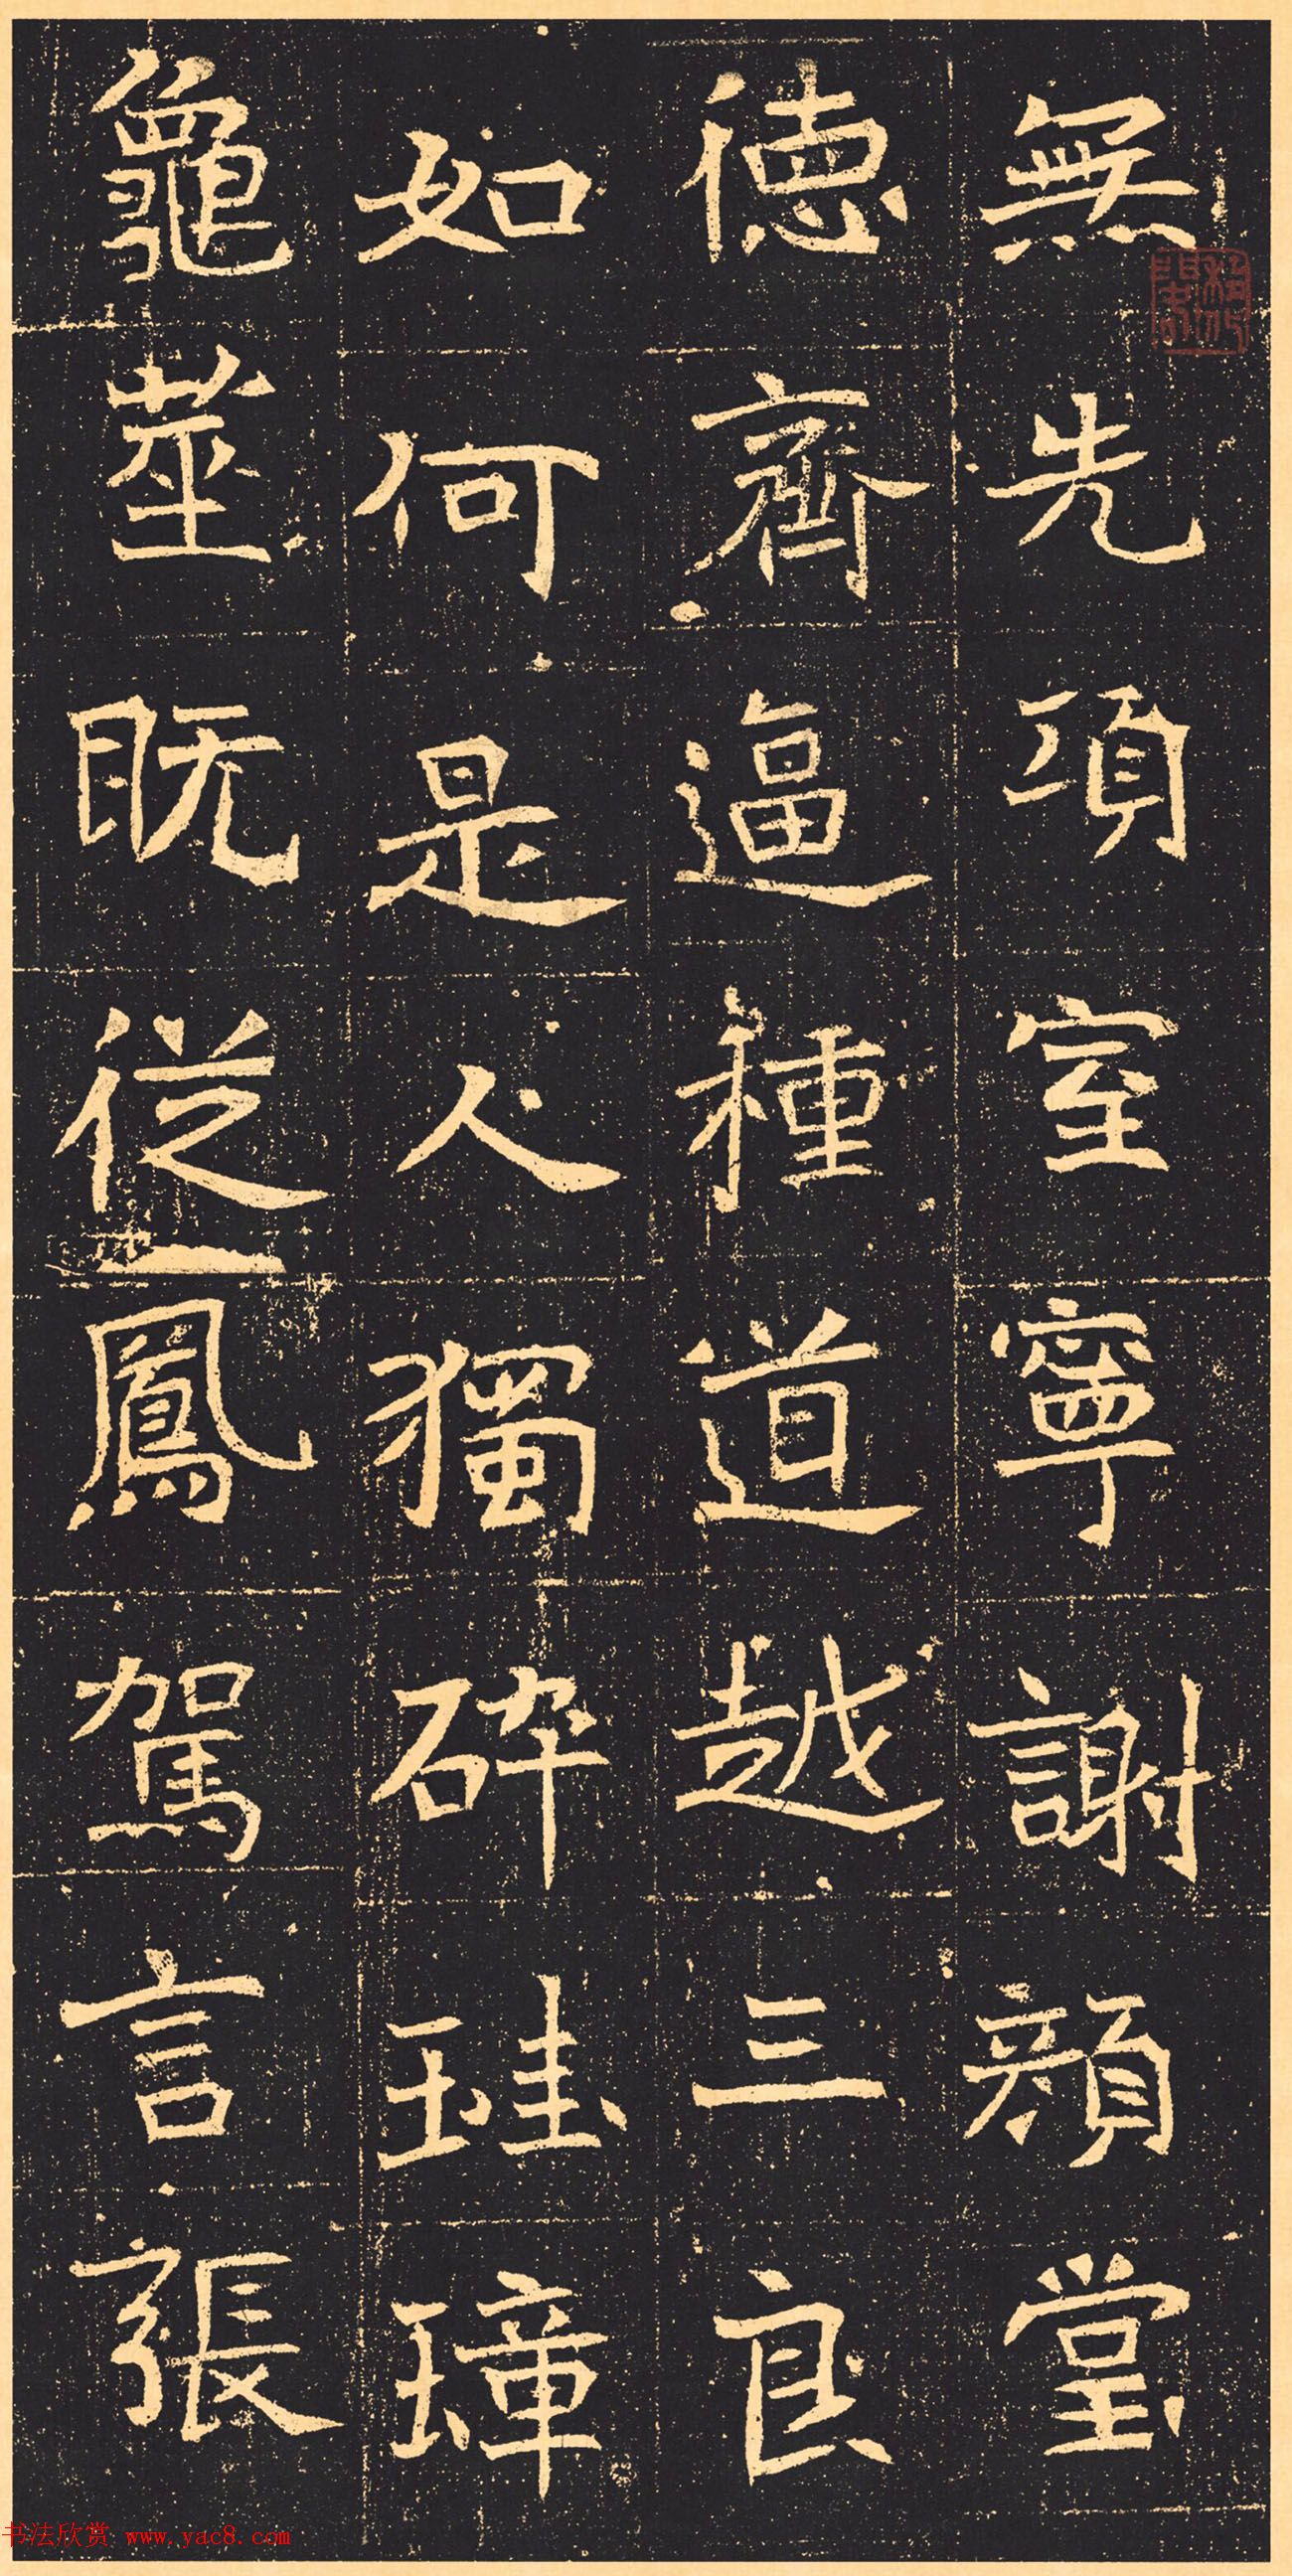 無先項室寧謝顏堂
德齊逼種道越三良
如何是人獨碎珪璋
龜莁既從鳳駕言張
书法欣赏 www.yac8.com